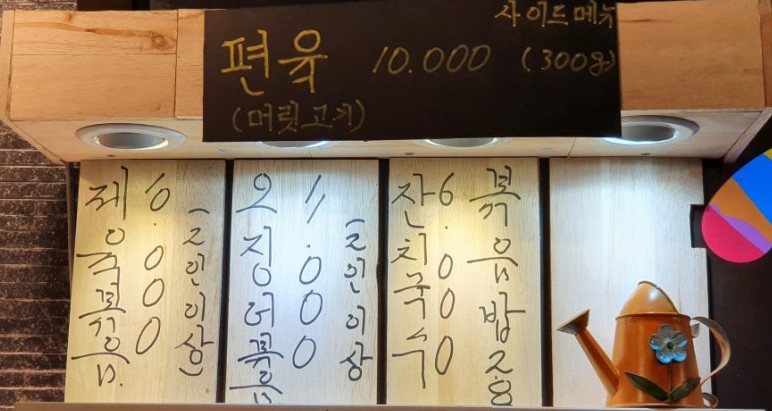 사이드메뉴
편육 10.000 (300g)
(머릿고기)
제육볶음.
6.000
(2인이상)
오징어볶음
11.000
(2인이상)
잔치국수
6.000
볶음밥2.